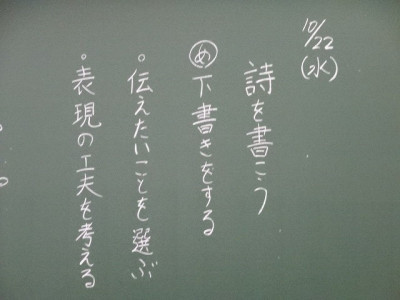 10/22
(水)
詩を書こう
め下書きをする
○伝えたいことを選ぶ
○表現の工夫を考える